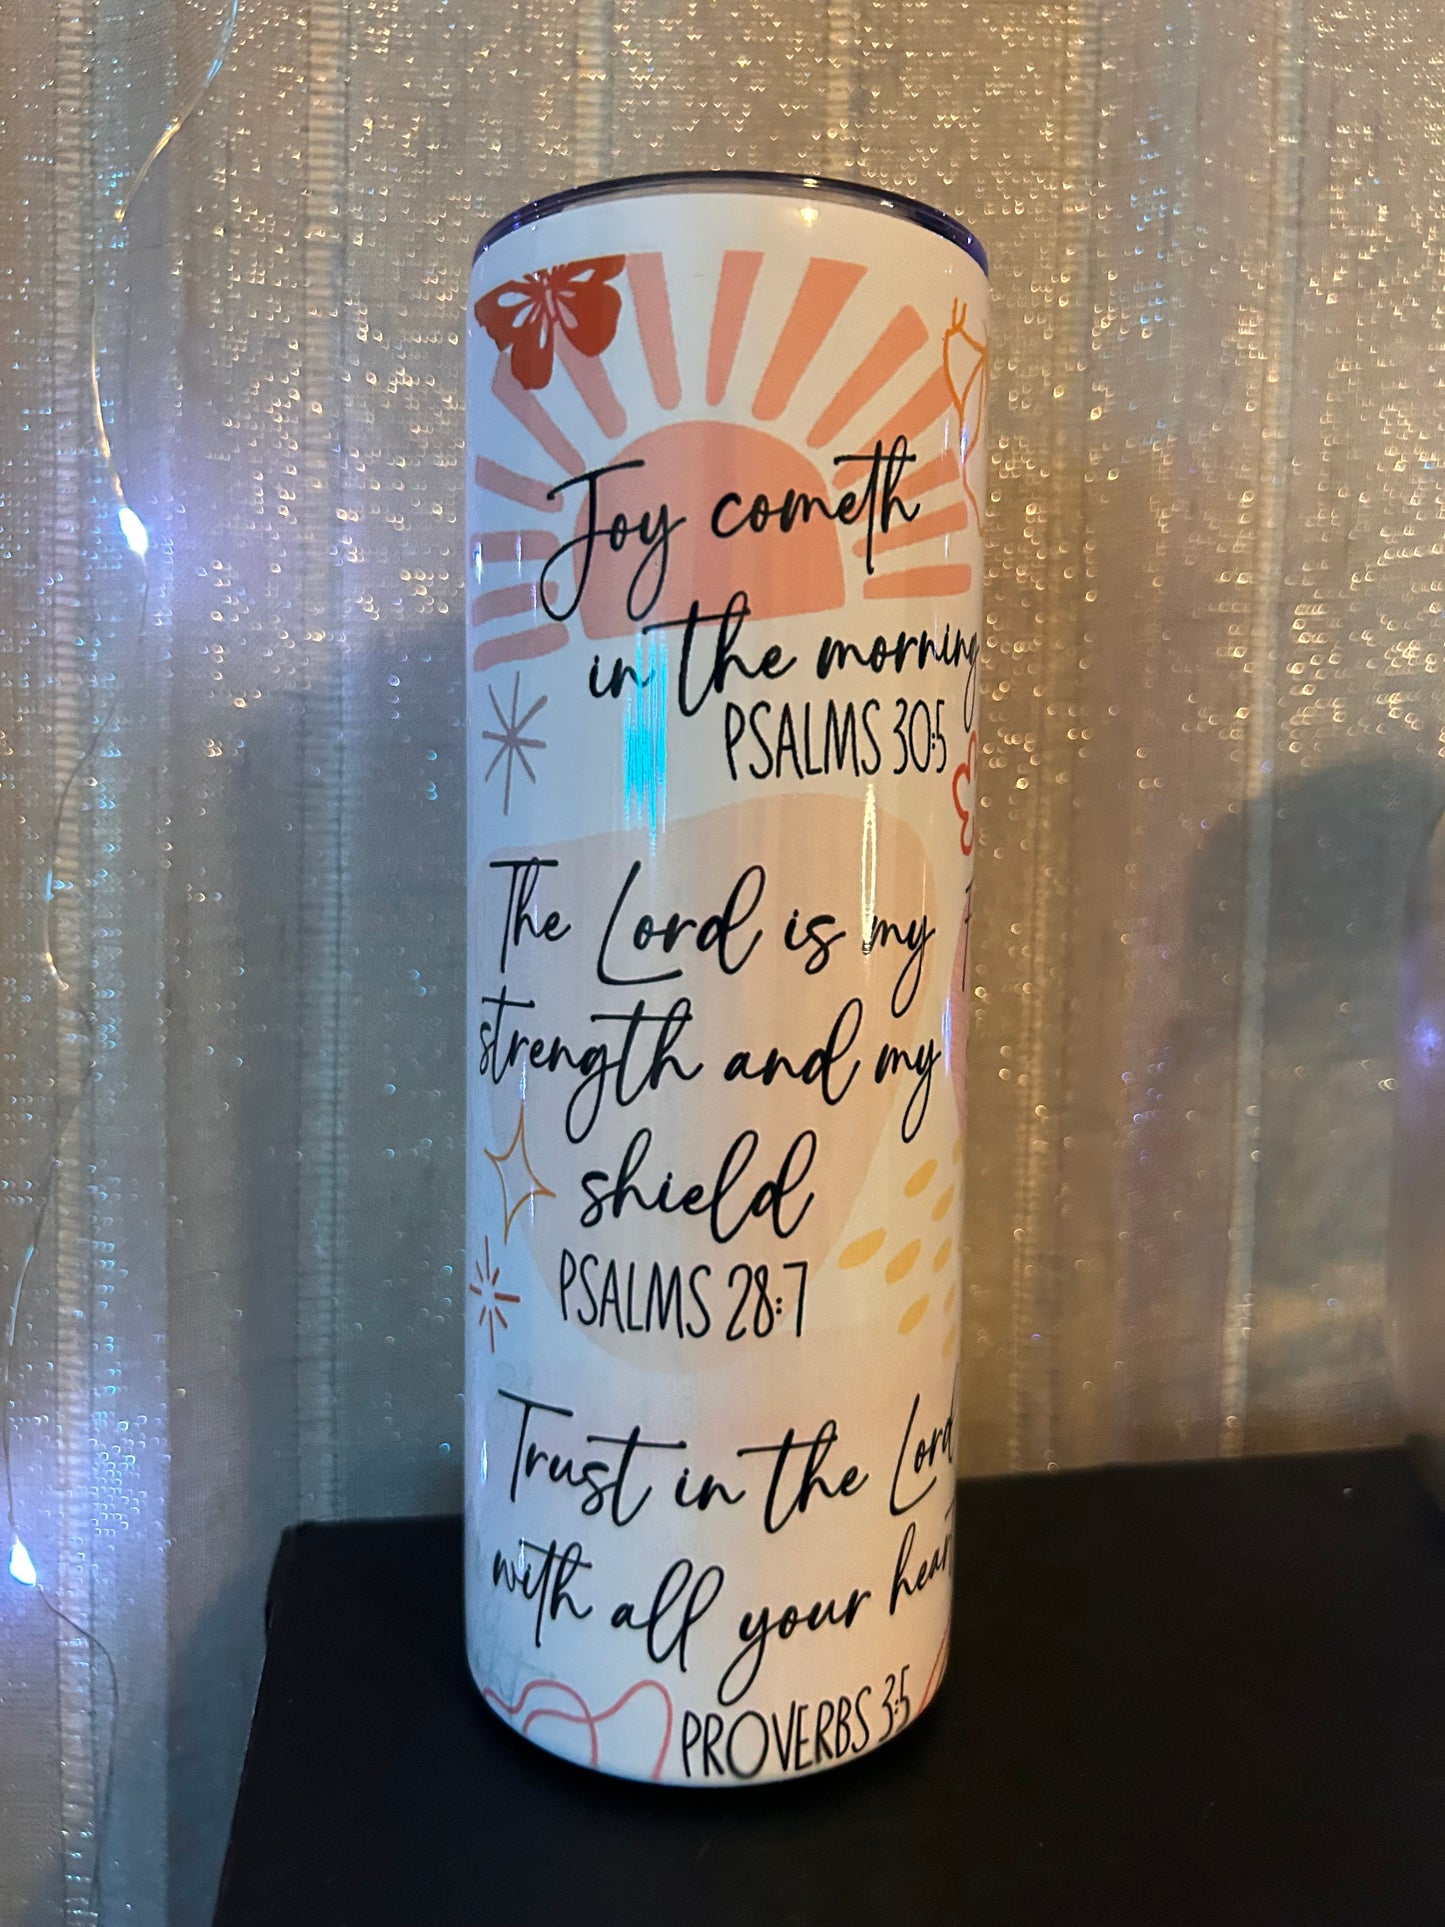 Joy cometh
in the morning
PSALMS 30:5
The Lord is my
strength and my
shield
PSALMS 28:7
Trust in the Lord
with all your heart
PROVERBS 3:5